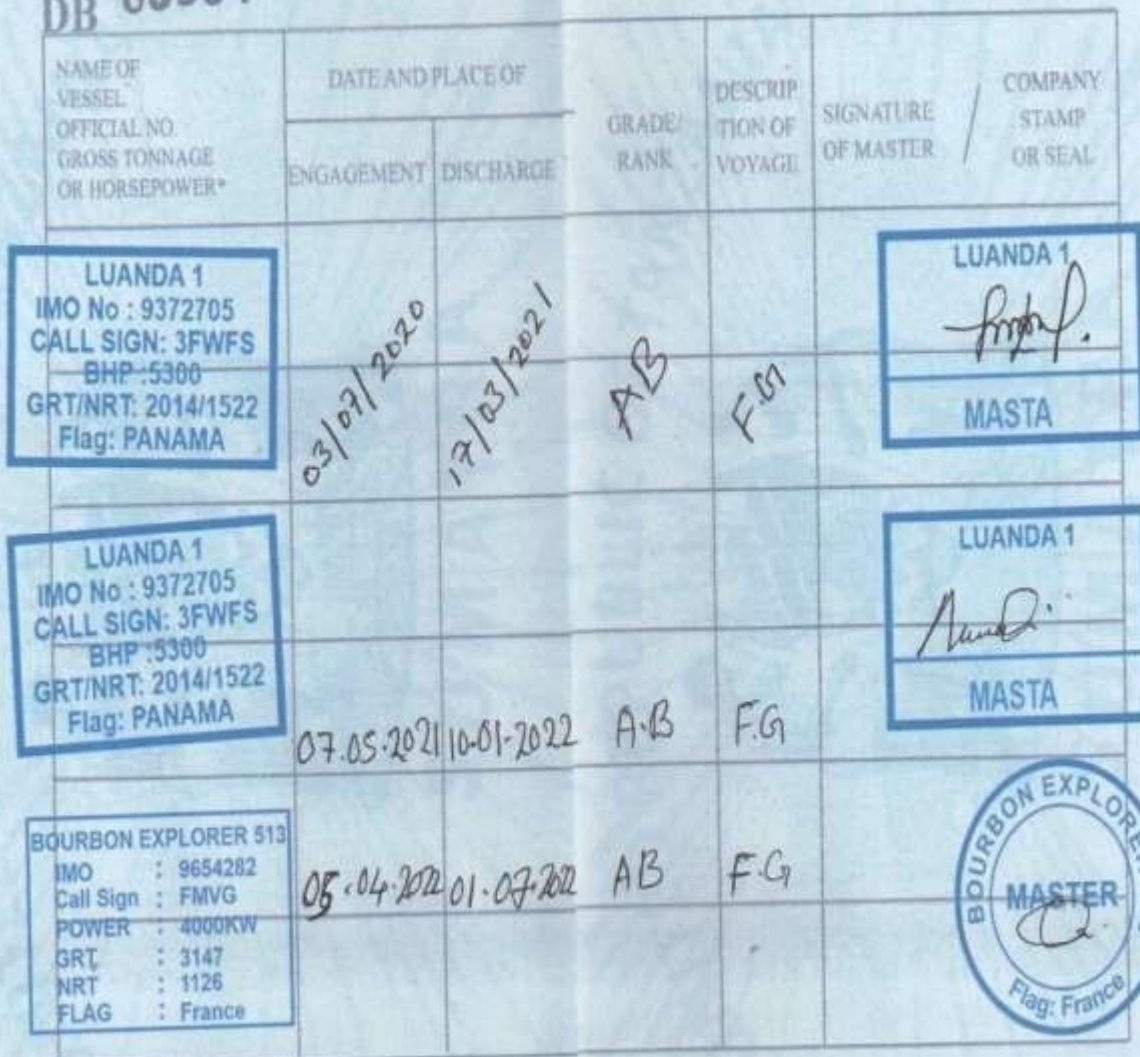 DB
NAME OF
VESSEL
OFFICIAL NO.
GROSS TONNAGE
OR HORSEPOWER*
DATE AND PLACE OF
ENGAGEMENT
DISCHARGE
GRADE/
RANK
DESCRIP
TION OF
VOYAGE
SIGNATURE
OF MASTER
/
COMPANY
STAMP
OR SEAL
LUANDA 1
IMO No : 9372705
CALL SIGN: 3FWFS
BHP :5300
GRT/NRT: 2014/1522
Flag: PANAMA
03/07/2020
17/03/2021
AB
F.G
LUANDA 1
MASTA
LUANDA 1
IMO No : 9372705
CALL SIGN: 3FWFS
BHP :5300
GRT/NRT: 2014/1522
Flag: PANAMA
07.05.2021
10-01-2022
A.B
F.G
LUANDA 1
MASTA
BOURBON EXPLORER 513
IMO : 9654282
Call Sign : FMVG
POWER : 4000KW
GRT : 3147
NRT : 1126
FLAG : France
05.04.2022
01.07.2022
AB
F.G
BOURBON EXPLORER
MASTER
Flag: France